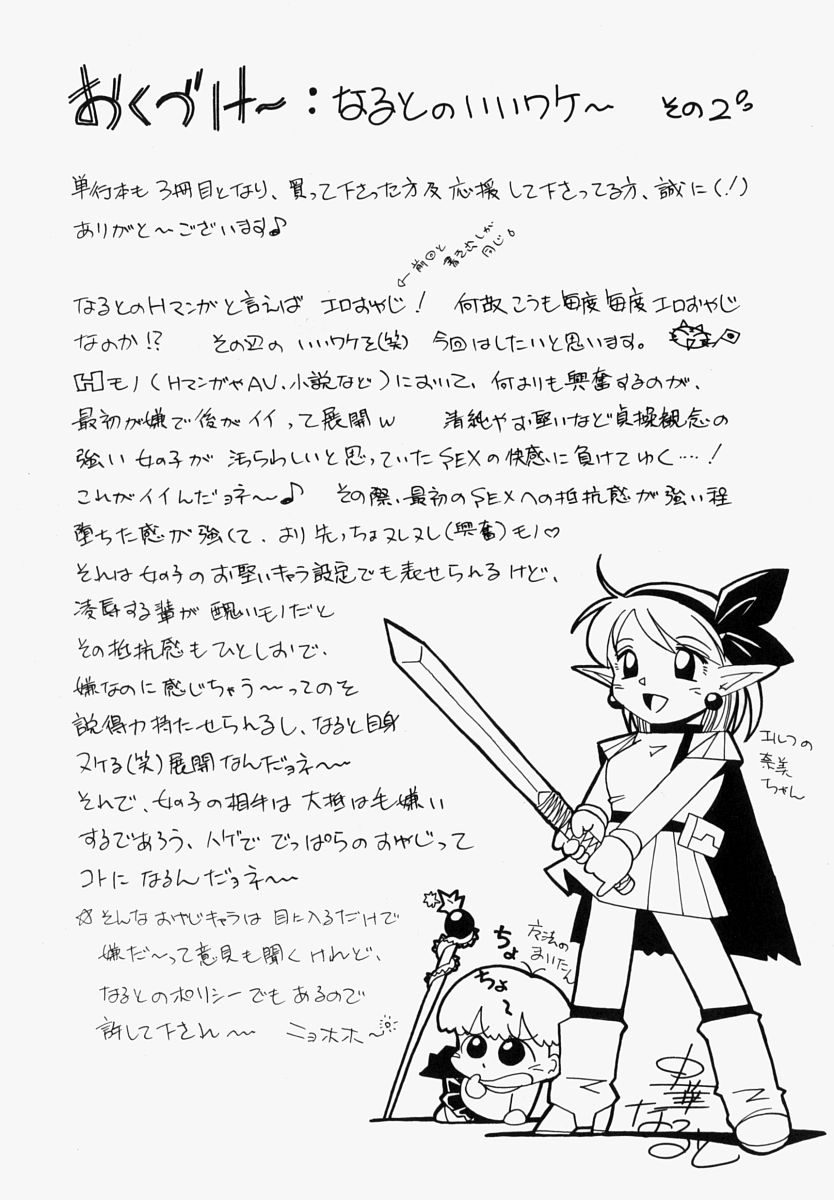 おくづけ〜：なるとのいいワケ〜 その2。
単行本も3冊目となり、買って下さった方及応援して下さってる方、誠に(!)
ありがと〜ございます♪
←前回と
書き出しが
同じ。
なるとのHマンガと言えば エロおやじ! 何故こうも毎度毎度エロおやじ
なのか!? その辺のいいワケを(笑) 今回はしたいと思います。
Hモノ(HマンガやAV、小説など)において、何よりも興奮するのが、
最初が嫌で後がイイって展開w 清純やお堅いなど貞操観念の
強い女の子が汚らわしいと思っていたSEXの快感に負けてゆく…!
これがイイんだョネ〜♪ その際、最初のSEXへの抵抗感が強い程
堕ちた感が強くて、より先っちょヌレヌレ(興奮)モノ♡
それは女の子のお堅いキャラ設定でも表せられるけど、
凌辱する輩が醜いモノだと
その抵抗感もひとしおで、
嫌なのに感じちゃう〜ってのを
説得力持たせられるし、なると自身
ヌケる(笑)展開なんだョネ〜
それで、女の子の相手は大抵は毛嫌い
するであろう、ハゲででっぱらのおやじって
コトになるんだョネ〜
☆そんなおやじキャラは目に入るだけで
嫌だ〜って意見も聞くけれど、
なるとのポリシーでもあるので
許して下され〜 ニョホホ〜
エルフの
奈美
ちゃん
ちょ
ちょ〜
魔法の
まいたん
中華
なると